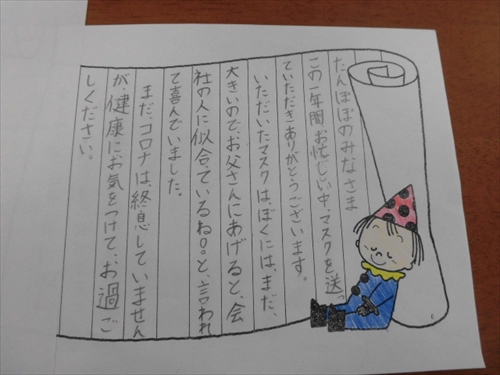 たんぽぽのみなさま
この一年間、お忙しい中、マスクを送っ
ていただきありがとうございます。
いただいたマスクは、ぼくには、まだ、
大きいので、お父さんにあげると、会
社の人に似合っているね。と、言われ
て喜んでいました。
まだ、コロナは、終息していません
が、健康にお気をつけて、お過ご
しください。